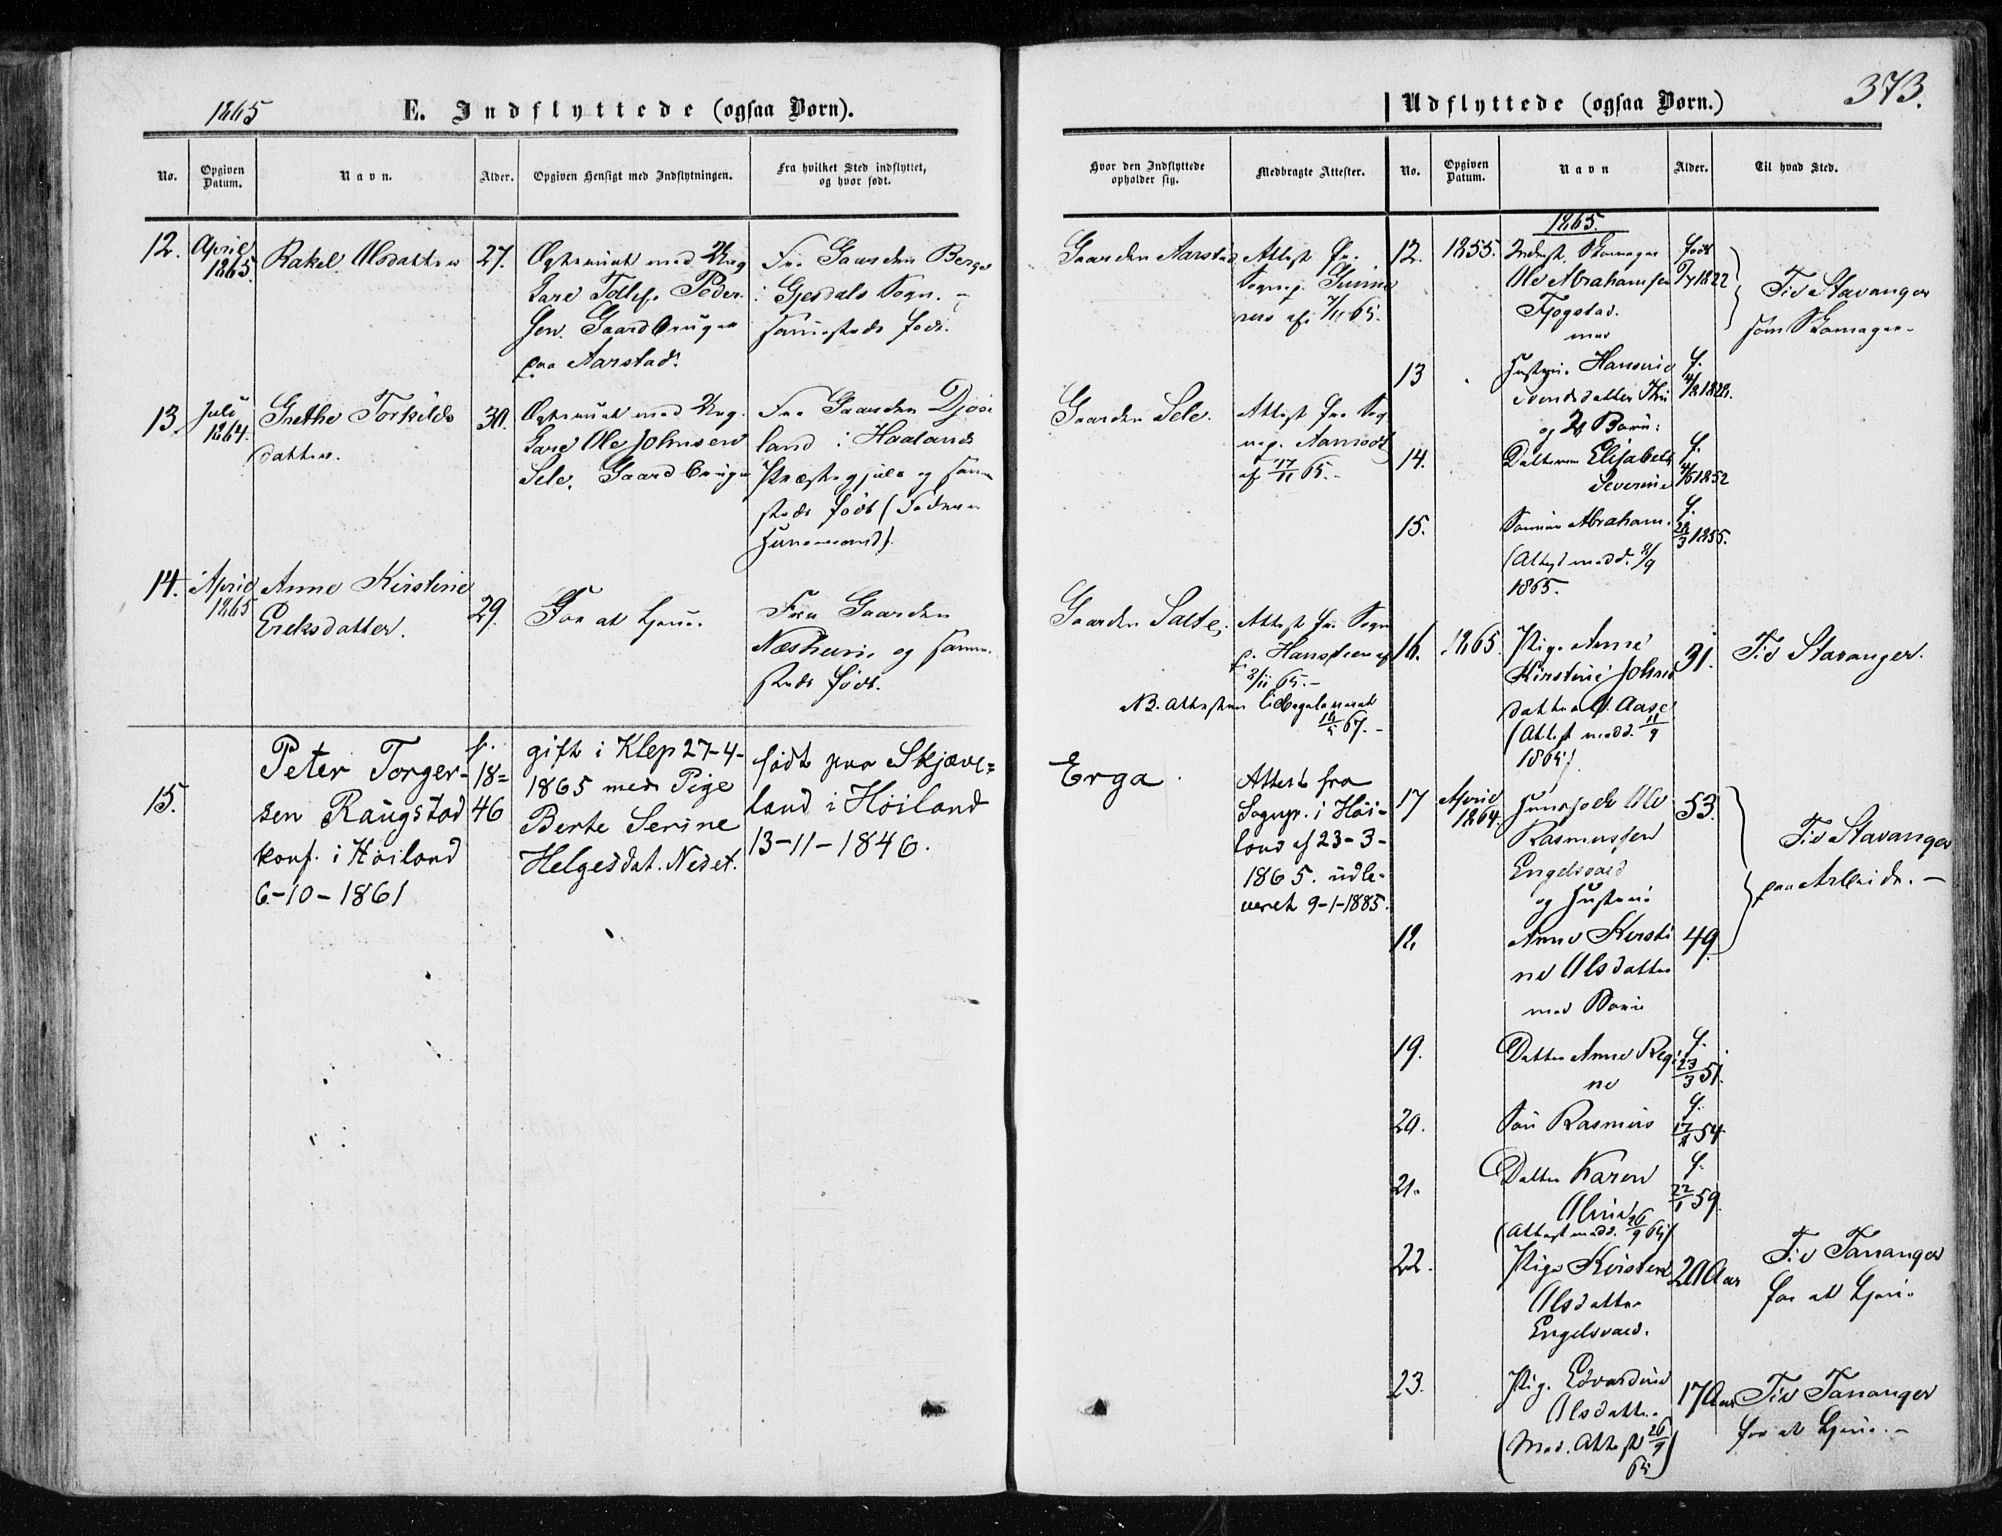 1865
E. Indflyttede (ogsaa Børn).
No.
Opgiven
Datum.
Navn.
Alder.
Opgiven Hensigt med Indflytningen.
Fra hvilket Sted indflyttet,
og hvor født.
12.
April
1865.
Rakel Olsdatter
27.
Ægteviet med Ung
karl Tollef Peder
sen. Gaardbruger
paa Aarstad.
Fra Gaarden Berge
i Gjesdals Sogn. –
sammesteds født.
13.
Juli
1864.
Grethe Torkilds
datter.
30.
Ægteviet med Ung
karl Ole Johnsen
Sele. Gaardbruger
Fra Gaarden
land i Haalands
Præstegjeld og samme
steds født (Faderen
Huusmand).
14.
April
1865
Anne Kirstine
Ereksdatter.
29.
For at tjene.
Fra Gaarden
Næsheim og samme
steds født.
15.
Peter Torger-
sen Raugstad
konf. i Høiland
6-10-1861
f.
18=
46
gift i Klep 27-4-
1865 med Pige
Berte Serine
Helgesdat. Neset.
født paa Skjæve=
land i Høiland
13-11-1846.
373.
Udflyttede (ogsaa Børn.)
Hvor den Indflyttede
opholder sig.
Medbragte Attester.
No.
Opgiven
Datum.
Navn
Alder.
Til hvad Sted.
Gaarden Aarstad
Attest fra
Sognep.
af 7/11 65.
Gaarden Sele.
Attest fra Sog
nep. Aamodt
af 17/11 65.-
Gaarden Salte.
Attest fra Sogn
p. Hansteen af
2/11 65.-
NB. Attesten tilbageleveret
67.-
Erga.
Attest fra
Sognpr. i Høi-
land af 23-3-
1865. udle-
veret 9-1-1885.
1865.
12.
1855.
Inderst, Skomager
Ole Abrahamsen
Fjogstad.
med
født
1822
Til Stavanger
som Skomager.
13
Hustru Hansine
Svendsdatter
og 2 Børn:
f.
14.
Datteren Elisabeth
Severine
f.
1852
15.
Sønnen Abraham.
(Attest medd. 8/9
1865.
f.
22/3 1855.
16.
1865.
Pige Anne
Kirstine Johns
datter Aase
(Attest medd. 11/9
1865)
31.
Til Stavanger.
17
April
1864.
Ole
Rasmussen
Engelsvold
og Hustru
53.
Til Stavanger
paa Arbeide. –
18.
Anne Kirsti
ne Olsdatter
med Børn
49.
19.
Datter Anne Regi
ne
f.
23/3 51.
20.
Søn Rasmus
f.
54.
21.
Datter Karen
Oline
(Attest medd. 26/9 65)
f.
22/1 59.
22.
Pige Kirsten
Olsdatter
Engelsvold.
20 Aar
Til Tananger
for at tjene.
23.
Pige Edvardine
Olsdatter
(Med. Attest 26/9
65)
17 Aar
Til Tananger
for at tjene. –